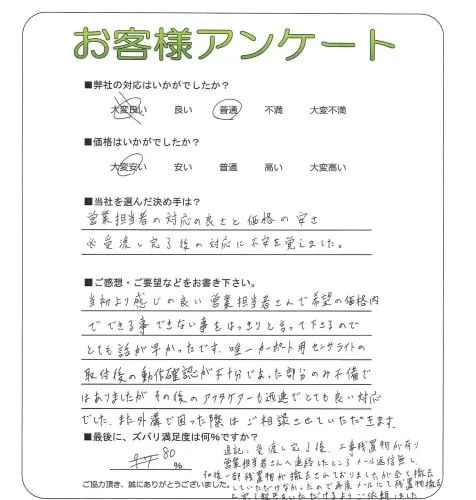 お客様アンケート
■弊社の対応はいかがでしたか？
大変良い 良い 普通 不満 大変不満
■価格はいかがでしたか？
大変安い 安い 普通 高い 大変高い
■当社を選んだ決め手は？
営業担当者の対応の良さと価格の安さ
※受渡し完了後の対応に不安を覚えました。
■ご感想・ご要望などをお書き下さい。
当初より感じの良い営業担当者さんで希望の価格内
でできる事できない事をはっきりと言って下さるので
とても話が早かったです。唯一カーポート用センサライトの
取付後の動作確認が不十分であった部分のみ不備で
はありましたがその後のアフタケアーも迅速でとても良い対応
でした。また外溝で困った際はご相談させていただきます。
■最後に、ズバリ満足度は何％ですか？
80
％
追記：受渡し完了後、工事残置物が有り
営業担当者さんへ連絡したところメール返信無し、
和後一部残置物が撤去されておりましたが全て撤去
していただけなかったので再度メールにて残置物撤去
ご協力頂き、誠にありがとうございました。